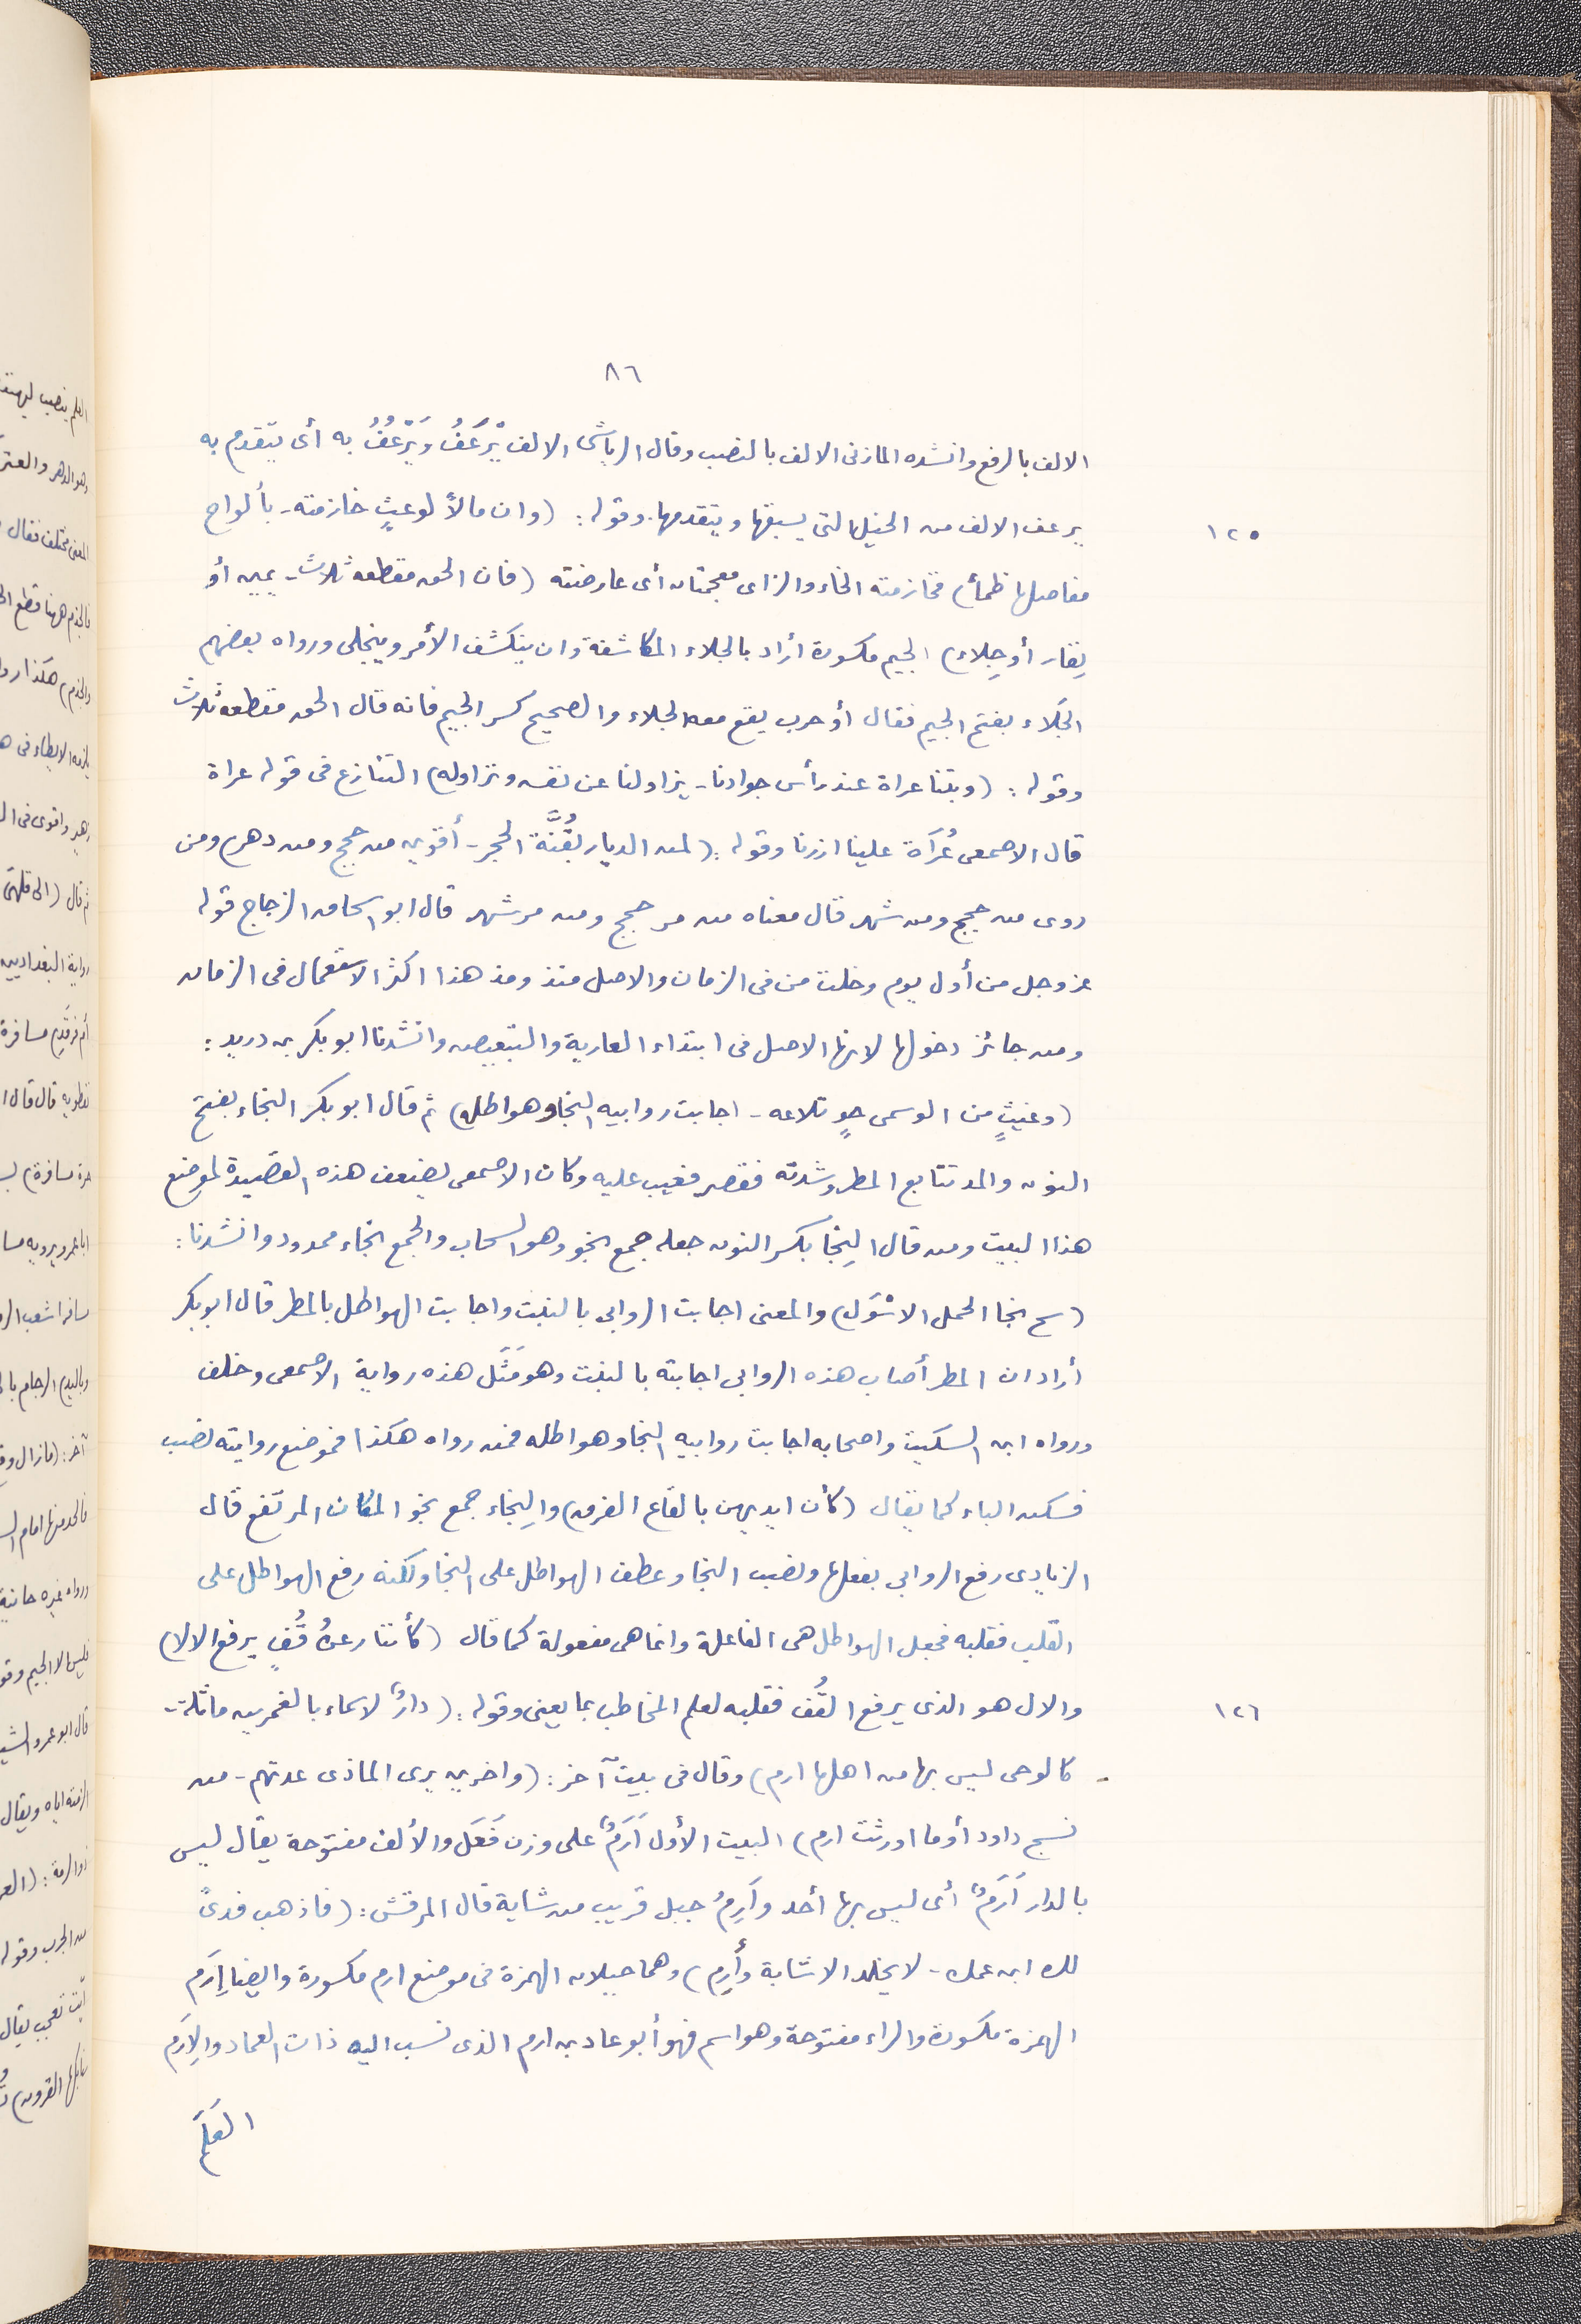 ٨٦
الالف بالرفع وانشده المازنى الالف بالنصب وقال الرياشى الالف يَرْعَفُ وَيَرْعُفُ به أى يتقدم به
١٢٥
يرعف الالف من الخيل التى يسبقها ويتقدمها. وقوله: (وان مالأ لوعثٍ خازمته - بألواح
مفاصلها ظمأ) فخازمته الخاء والزاى معجمتان أى عارضته (فان الحق مقطعه ثلاث - يمين أو
نِفار أو جِلاء) الجيم مكسورة أراد بالجلاء المكاشفة وان ينكشف الأمر وينجلى ورواه بعضهم
الجَلاء بفتح الجيم فقال أو حرب يقع معه الجلاء والصحيح كسر الجيم فانه قال الحق مقطعه ثلاث
وقوله: (وبتنا عراة عند رأس جوادنا - يزاولنا عن نفسه ونزاوله) التنازع فى قوله عراة
قال الاصمعى عُرَاة علينا ازرنا وقوله: (لمن الديار بقُنَّة الحجر - أقوين من حجج ومن دهر) ومن
روى من حجج ومن شهر قال معناه من مر حجج ومن مر شهر قال ابو اسحاق الزجاج قوله
عز وجل من أول يوم دخلت من فى الزمان والاصل منذ ومذ هذا اكثر الاستعمال فى الزمان
ومن جائز دخولها لانها الاصل فى ابتداء الغاية والتبعيض وانشدنا ابو بكر بن دريد:
(وغيثٍ من الوسمى حوٍ تلاعه - اجابت روابيه النجا وهواطله) ثم قال ابو بكر النجاء بفتح
النون والمد تتابع المطر وشدته فقصر فعيب عليه وكان الاصمعى يضعف هذه القصيدة لموضع
هذا البيت ومن قال النِجَا بكسر النون جعله جمع نجو وهو السحاب والجمع نجاء ممدود وانشدنا:
(سح نجا الحمل الاسْوَل) والمعنى اجابت الروابى بالنبت واجابت الهواطل بالمطر قال ابو بكر
أراد ان المطر أصاب هذه الروابى اجابته بالنبت وهو مَثَل هذه رواية الاصمعى وخلف
ورواه ابن السكيت واصحابه اجابت روابيه النجا وهواطله فمن رواه هكذا فموضع روايته نصب
فسكن الياء كما يقال (كأن ايديهن بالقاع القرق) والنِجاء جمع نجو المكان المرتفع قال
الزيادى رفع الروابى بفعلها ونصب النجا وعطف الهواطل على النجا ولكنه رفع الهواطل على
القلب فقلبه فجعل الهواطل هى الفاعلة وانما هى مفعولة كما قال (كأننا رعنُ قُفٍ يرفع الالا)
١٢٦
والال هو الذى يرفع القُف فقلبه لعلم المخاطب بما يعنى وقوله: (دارٌ لاسماء بالغمرين ماثلة -
كالوحى ليس بها من اهلها ارم) وقال فى بيت آخر: (واخرين يرى الماذى عدتهم - من
نسج داود أو ما اورثت ارم) البيت الأول أَرَمٌ على وزن فَعَل والألف مفتوحة يقال ليس
بالدار أَرَمٌ أى ليس بها أحد وأَرِمُ جبل قريب من شابة قال المرقش: (فاذهب فدىً
لك ابن عمك - لا يخلد الا شابة وأَرِم) وهما جبلان الهمزة فى موضع ارم مكسورة وايضا إِرَم
الهمزة مكسورة والراء مفتوحة وهو اسم فهو أبو عاد بن ارم الذى نسب اليه ذات العماد والإِرَم
العَلَم